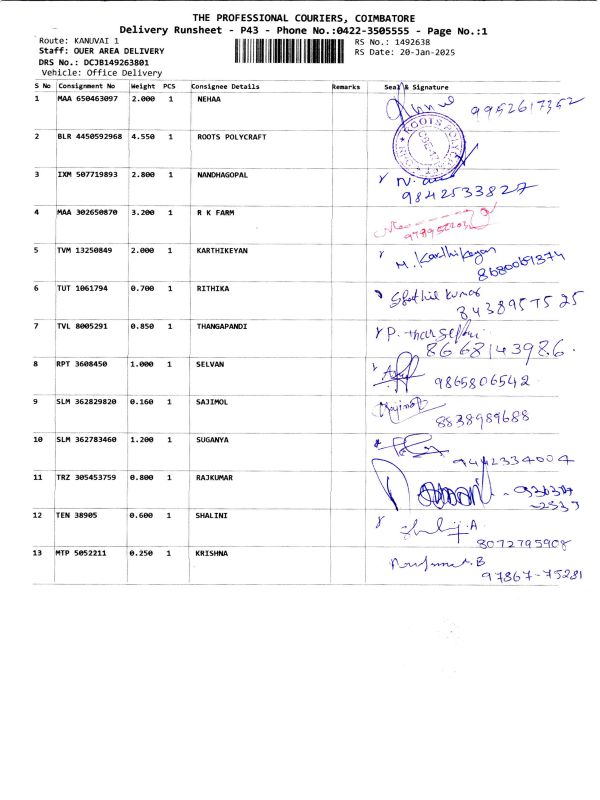 THE PROFESSIONAL COURIERS, COIMBATORE
Delivery Runsheet - P43 - Phone No.:0422-3505555 - Page No.:1
Route: KANUVAI 1 RS No.: 1492638
Staff: OUER AREA DELIVERY RS Date: 20-Jan-2025
DRS No.: DCJB149263801
Vehicle: Office Delivery
S No Consignment No Weight PCS Consignee Details Remarks Seal & Signature
1 MAA 650463097 2.000 1 NEHAA 9952617352
2 BLR 4450592968 4.550 1 ROOTS POLYCRAFT ROOTS
3 IXM 507719893 2.800 1 NANDHAGOPAL 9842533827
4 MAA 302650870 3.200 1 R K FARM
5 TVM 13250849 2.000 1 KARTHIKEYAN M. Karthikeyan
8680069374
6 TUT 1061794 0.700 1 RITHIKA
8438957525
7 TVL 8005291 0.850 1 THANGAPANDI P.
8668143986.
8 RPT 3608450 1.000 1 SELVAN 9865806542
9 SLM 362829820 0.160 1 SAJIMOL
8838989688
10 SLM 362783460 1.200 1 SUGANYA
9442334004
11 TRZ 305453759 0.800 1 RAJKUMAR
12 TEN 38905 0.600 1 SHALINI
8072795908
13 MTP 5052211 0.250 1 KRISHNA
97867-75281